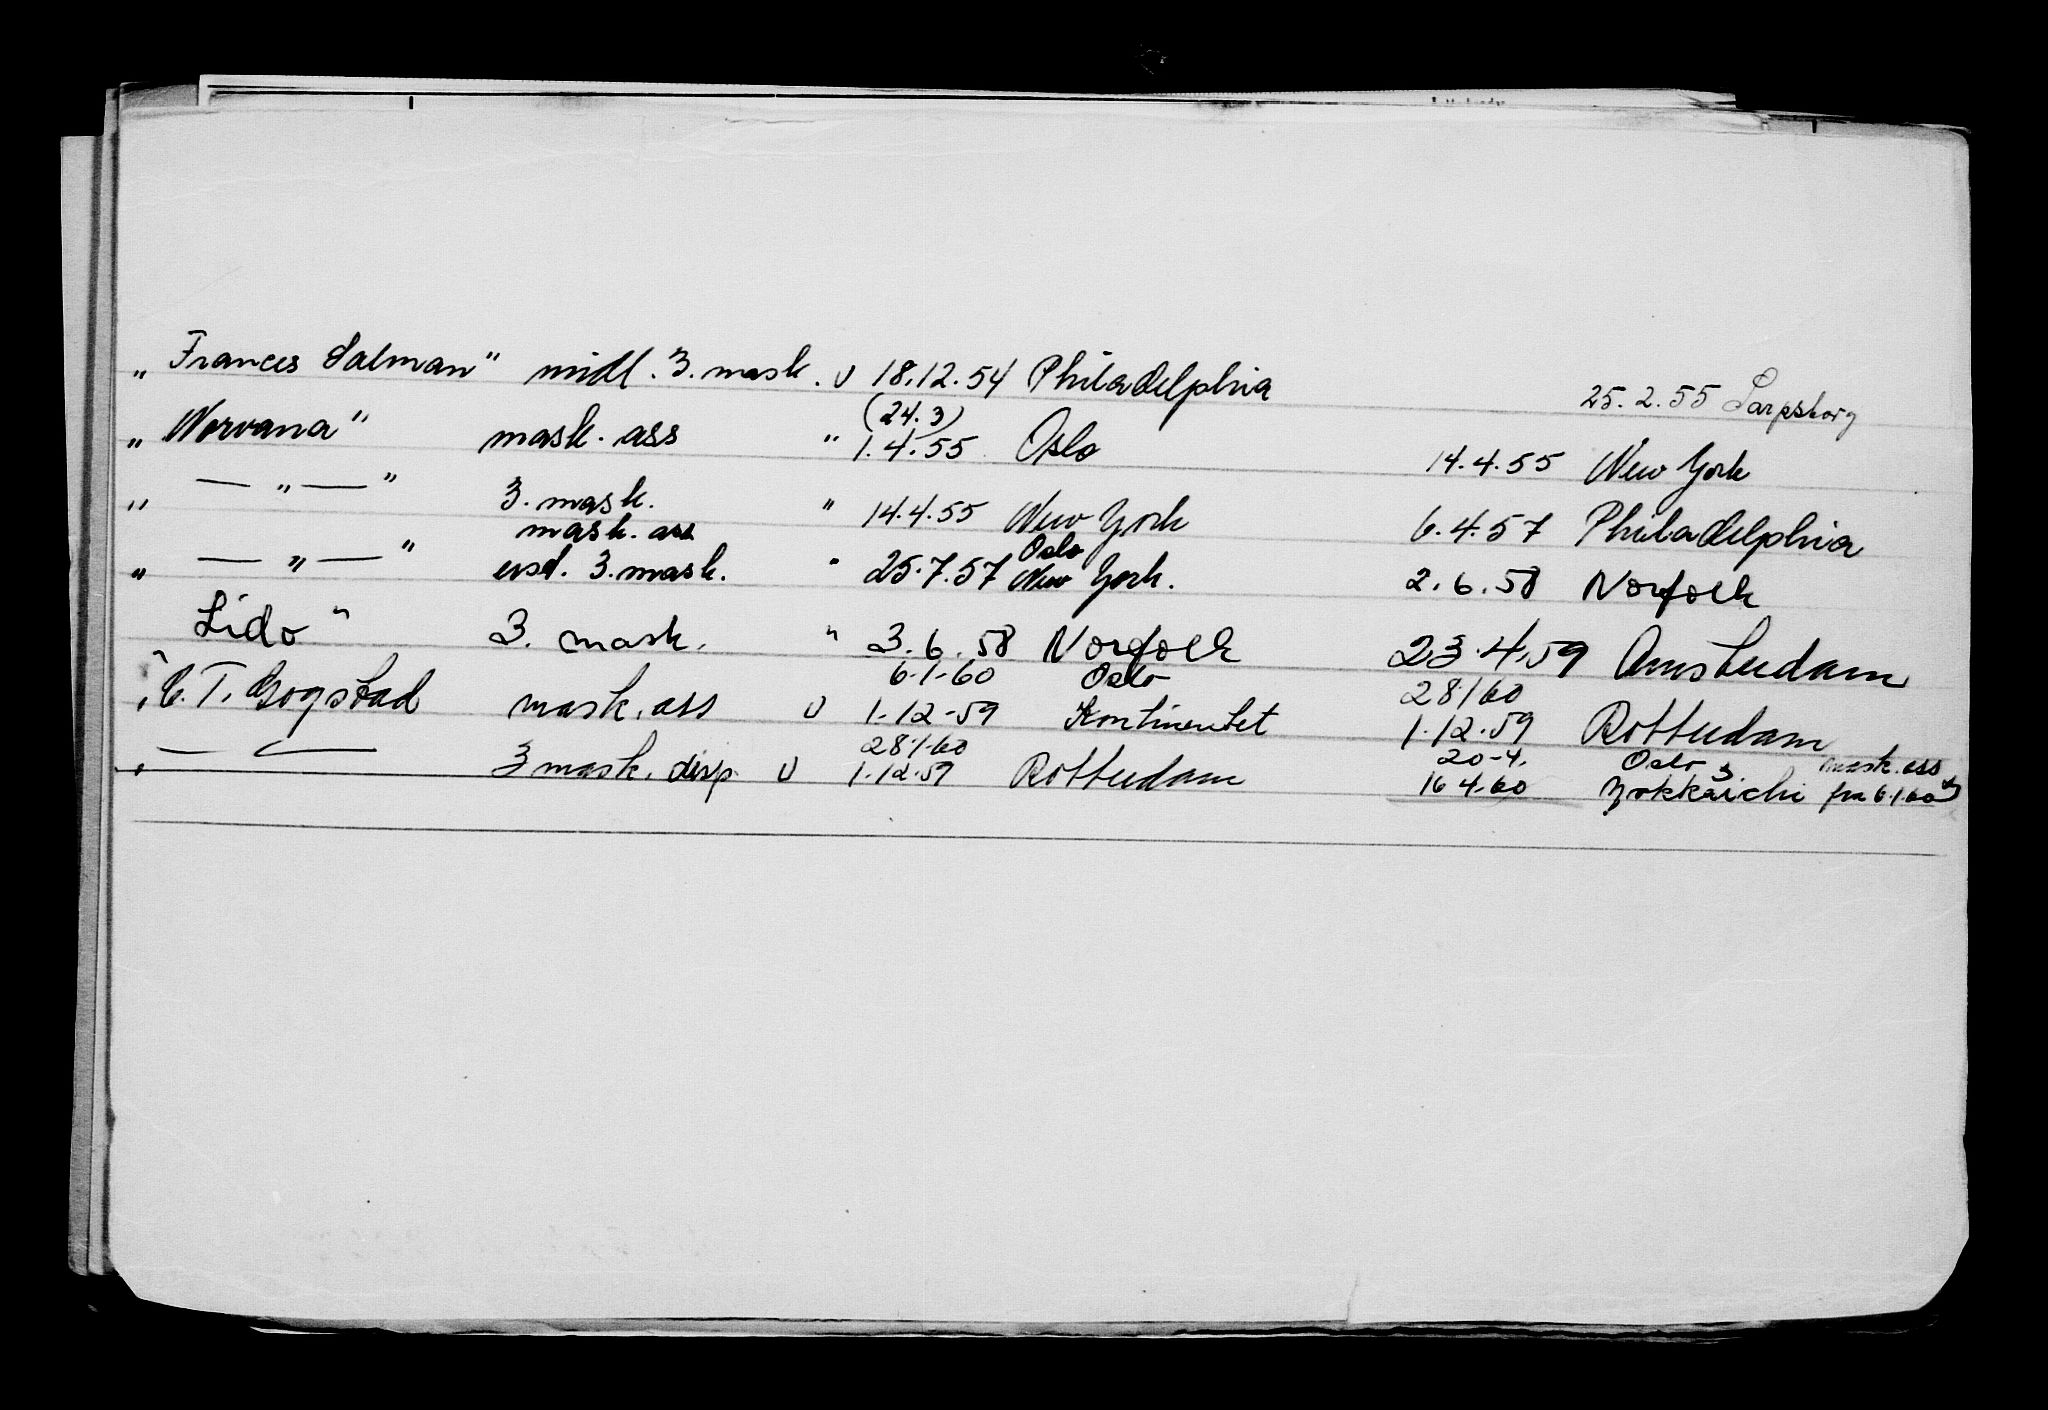 „ Frances Salman" midl. 3. mask. u 18.12.54 Philadelphia 25.2.55 Sarpsborg
(24.3)
„ Norvana" mask. ass " 1.4.55 Oslo 14.4.55 New York
„ — „ — " 3. mask. " 14.4.55 New York 6.4.57 Philadelphia
mask. ass Oslo
„ — „ — " 3. mask. " 25.7.57 New York. 2.6.58 Norfolk
Lido" 3. mask. " 3.6.58 Norfolk 23.4.59 Amsterdam
6.1.60 Oslo 28 1 60
" C. T. Gogstad mask. ass u 1.12-59 Kontinentet 1.12.59 Rotterdam
28.1.60 20-4. Oslo mask. ass
„ — 3 mask. disp. u 1.12.59 Rotterdam 16 4.60 Yokkaichi fra 6.1.60